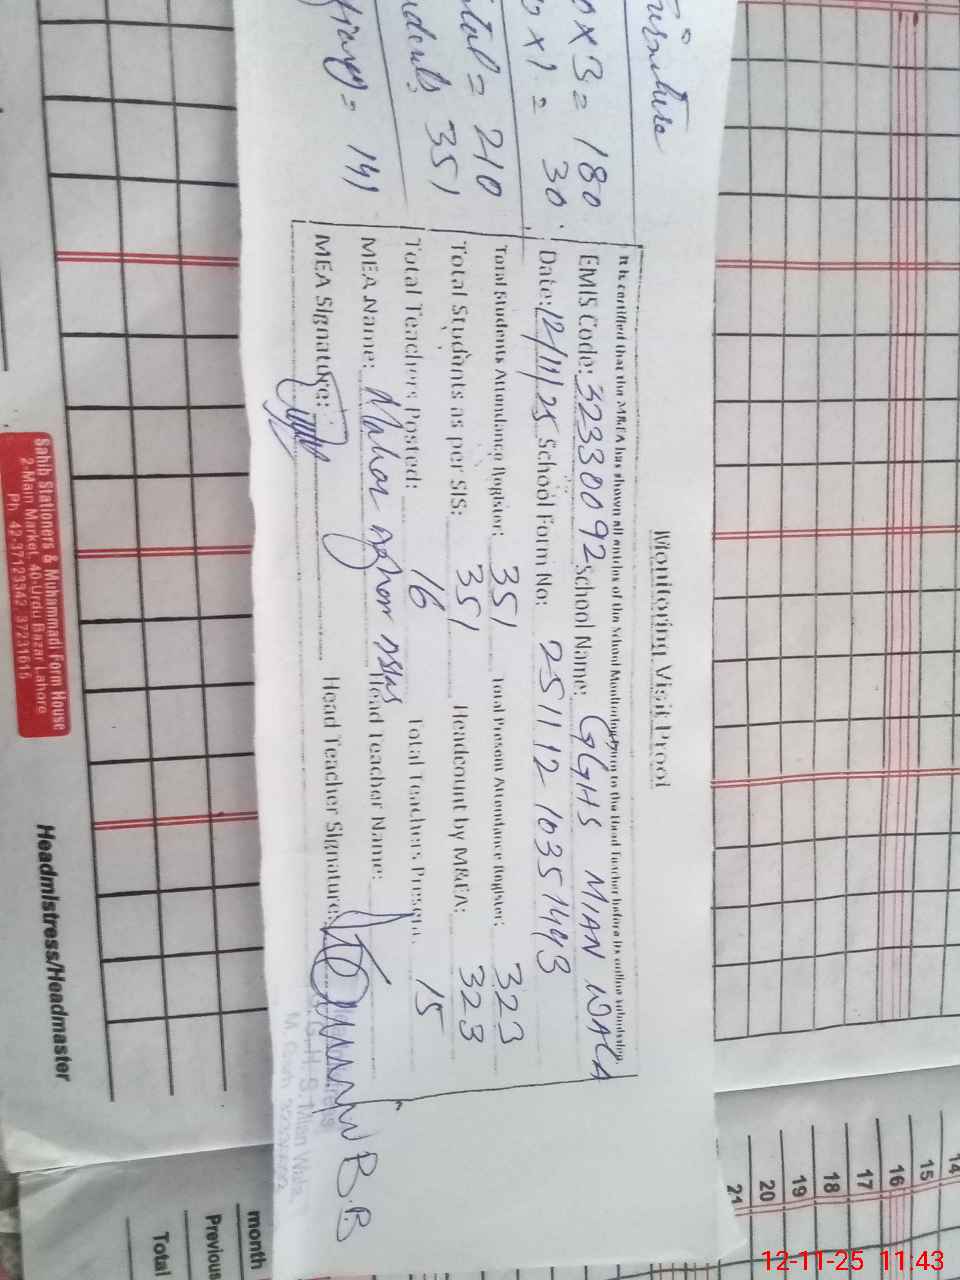 Furniture
0 × 3 = 180
0 × 1 = 30
Total = 210
Students 351
= 141
Monitoring Visit Proof
It is certified that the M&EA has shown all entries of the School Monitoring Form to the Head Teacher before its online submission.
EMIS Code: 32330092 School Name: GGHS MIAN WALA
Date: 12/11/25 School Form No: 251112 10351443
Total Students Attendance Register: 351 Total Present Attendance Register: 323
Total Students as per SIS: 351 Headcount by M&EA: 323
Total Teachers Posted: 16 Total Teachers Present: 15
MEA Name: Head Teacher Name:
MEA Signature: Head Teacher Signature:
B.B
Sahib Stationers & Muhammadi Form House
2-Main Market, 40-Urdu Bazar Lahore
Ph: 42-37123342, 37231616
Headmistress/Headmaster
14
15
16
17
18
19
20
21
month
Previous
Total
12-11-25 11:43